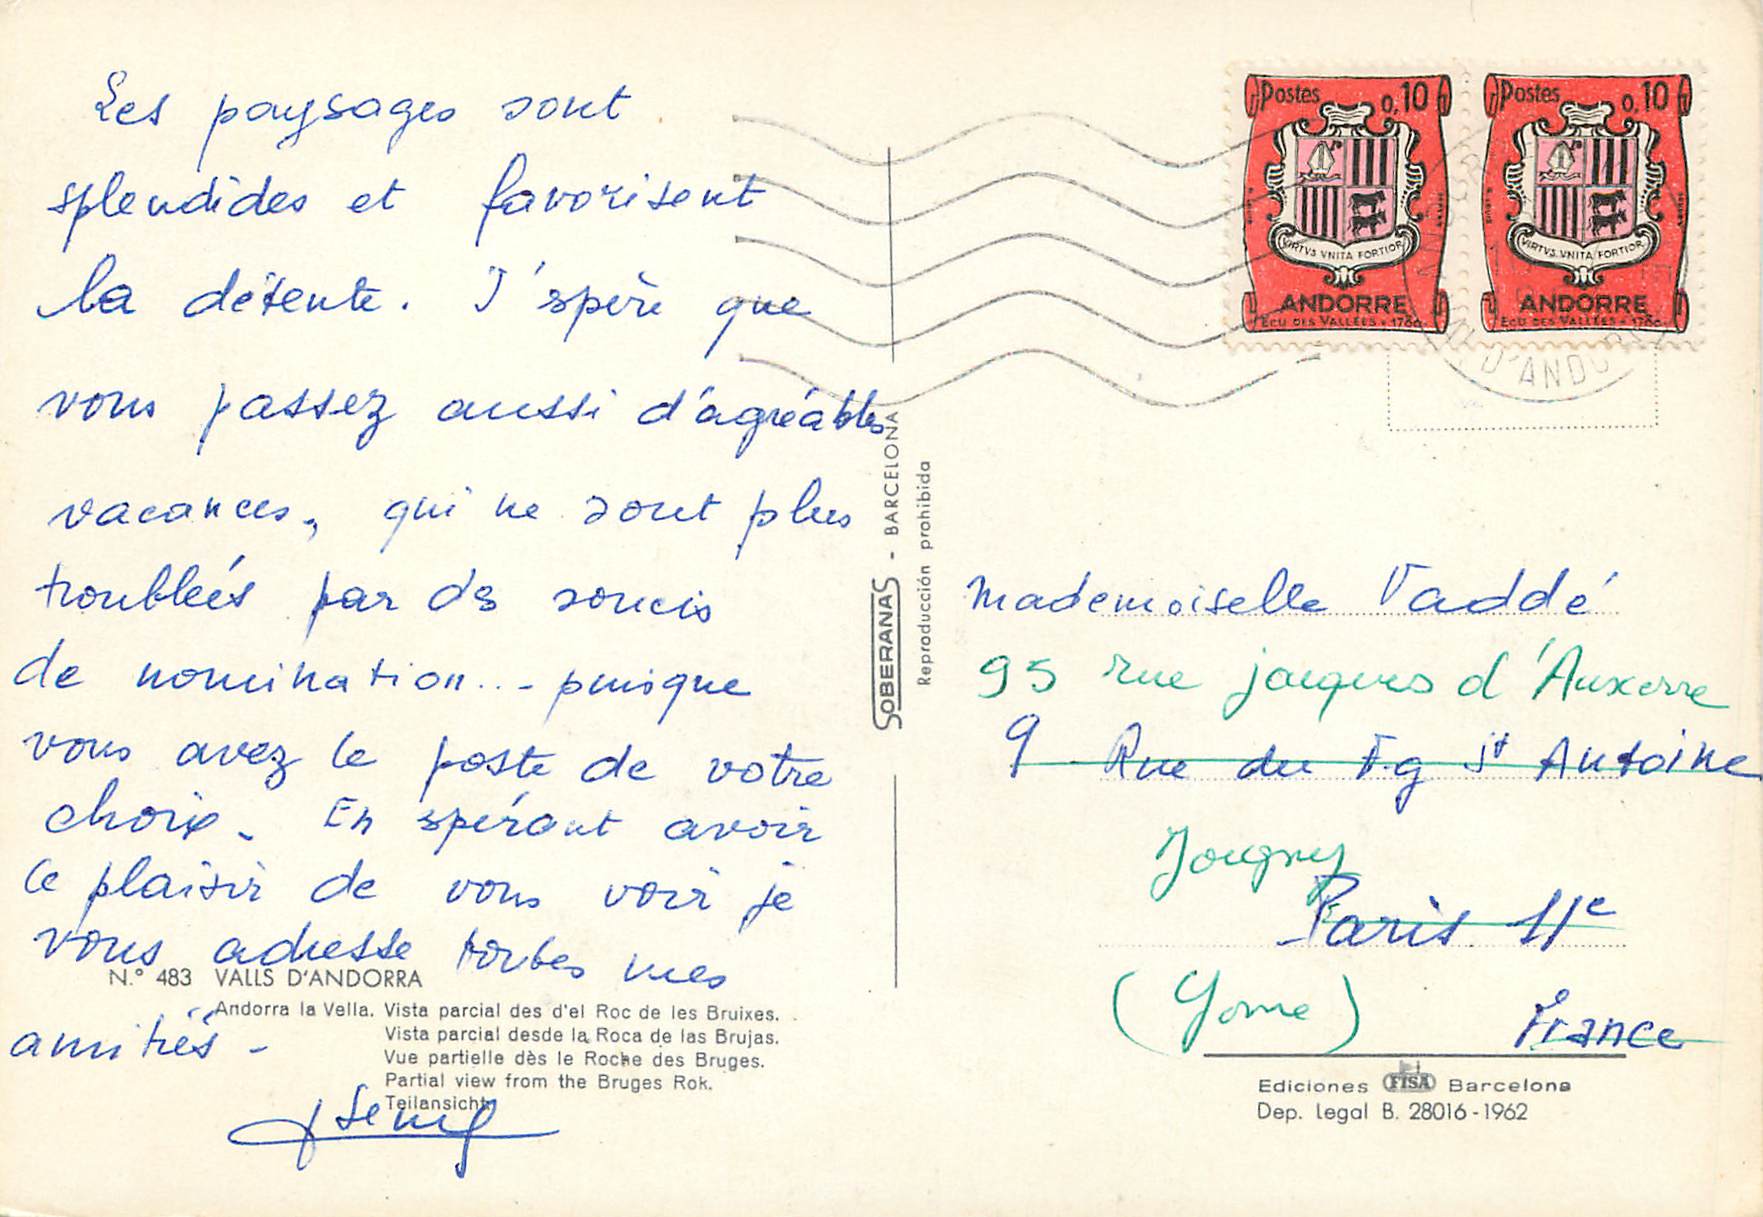 Les paysages sont
splendides et favorisent
la détente. J'spère que
vous passez aussi d'agréables
vacances, qui ne sont plus
troublées par des soucis
de nomination... - puisque
vous avez le poste de votre
choix. En spérant avoir
le plaisir de vous voir je
vous adresse toutes mes
amitiés -
N.° 483 VALLS D'ANDORRA
Andorra la Vella. Vista parcial des d'el Roc de les Bruixes.
Vista parcial desde la Roca de las Brujas.
Vue partielle dès le Roche des Bruges.
Partial view from the Bruges Rok.
Teilansicht
SOBERANAS - BARCELONA
Reproducción prohibida
Postes 0,10
VIRTVS VNITA FORTIOR
ANDORRE
ECU DES VALLÉES - 1780
Postes 0,10
VIRTVS VNITA FORTIOR
ANDORRE
ECU DES VALLÉES - 1780
D'ANDORRE
Mademoiselle Vaddé
95 rue jacques d'Auxerre
9 Rue du F.g St Antoine
Joigny
Paris 11e
(Yonne)
France
Ediciones FISA Barcelona
Dep. Legal B. 28016-1962